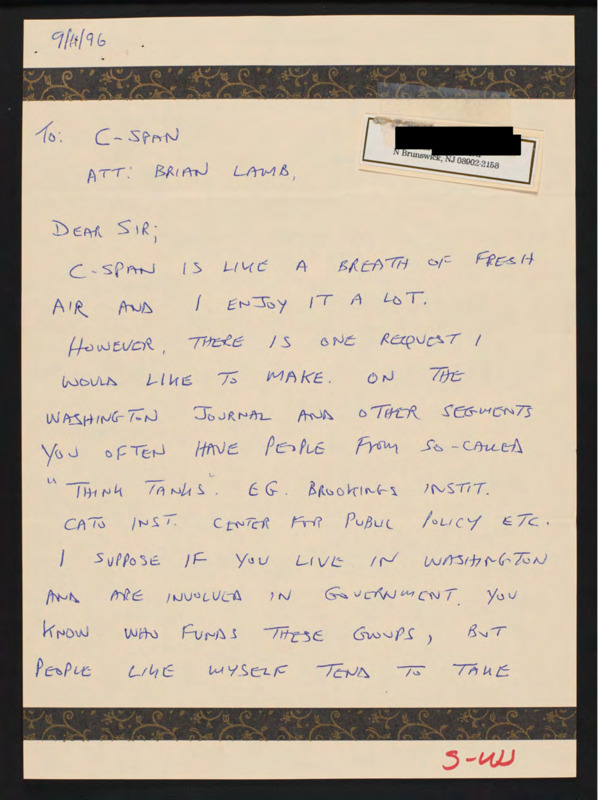 9/11/96
To: C-SPAN
ATT: BRIAN LAMB,
N Brunswick, NJ 08902-2158
DEAR SIR;
C-SPAN IS LIKE A BREATH OF FRESH
AIR AND I ENJOY IT A LOT.
HOWEVER, THERE IS ONE REQUEST I
WOULD LIKE TO MAKE. ON THE
WASHINGTON JOURNAL AND OTHER SEGMENTS
YOU OFTEN HAVE PEOPLE FROM SO-CALLED
"THINK TANKS". EG. BROOKINGS INSTIT.
CATO INST. CENTER FOR PUBLIC POLICY ETC.
I SUPPOSE IF YOU LIVE IN WASHINGTON
AND ARE INVOLVED IN GOVERNMENT, YOU
KNOW WHO FUNDS THESE GROUPS, BUT
PEOPLE LIKE MYSELF TEND TO TAKE